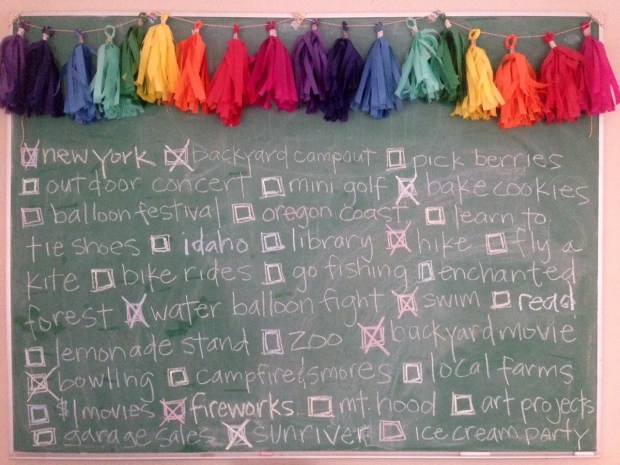 new york backyard campout pick berries
outdoor concert mini golf bake cookies
balloon festival oregon coast learn to
tie shoes idaho library hike fly a
kite bike rides go fishing enchanted
forest water balloon fight swim read
lemonade stand zoo backyard movie
bowling campfire & smores local farms
$1 movies fireworks mt. hood art projects
garage sales sunriver ice cream party